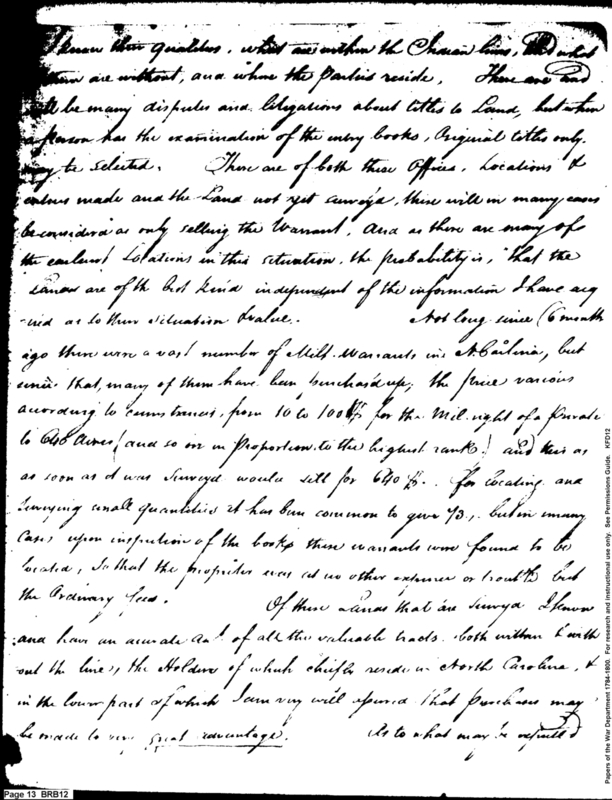 know their qualities, what are within the Indian lines, and what
them are without, and where the Parties reside. There are and
will be many disputes and litigations about titles to Land, but when
a person has the examination of the entry books, Original titles only
may be selected. There are of both these Offices, Locations &
entries made and the Land not yet survey'd, these will in many cases
be consider'd as only selling the Warrant, and as there are many of
the earliest Locations in this situation, the probability is, that the
Lands are of the best kind independent of the information I have acq
-uired as to their situation & value. Not long since (6 month
ago there were a vast number of Milt. Warrants in N. Carolina, but
since that, many of them have been purchas'd up, the price various
according to circumstances, from 10 to 100 $ for the Mil. right of a Private
to 640 Acres (and so on in Proportion to the highest rank) and this as
as soon as it was Surveyd would sell for 640 $. For locating and
Surveying small quantities it has been common to give 1/3, but in many
cases upon inspection of the books these warrants were found to be
located, so that the proprietor was at no other expence or trouble but
the Ordinary fees. Of these Lands that are Survey'd I know
and have an accurate Act. of all the valuable tracts both within & with
out the line, the Holders of which chiefly reside in North Carolina, &
in the lower part of which I am very well assured that Purchases may
be made to very great advantage. As to what may be
Page 13 BRB12
Papers of the War Department 1784-1800. For research and instructional use only. See Permissions Guide. KFD12